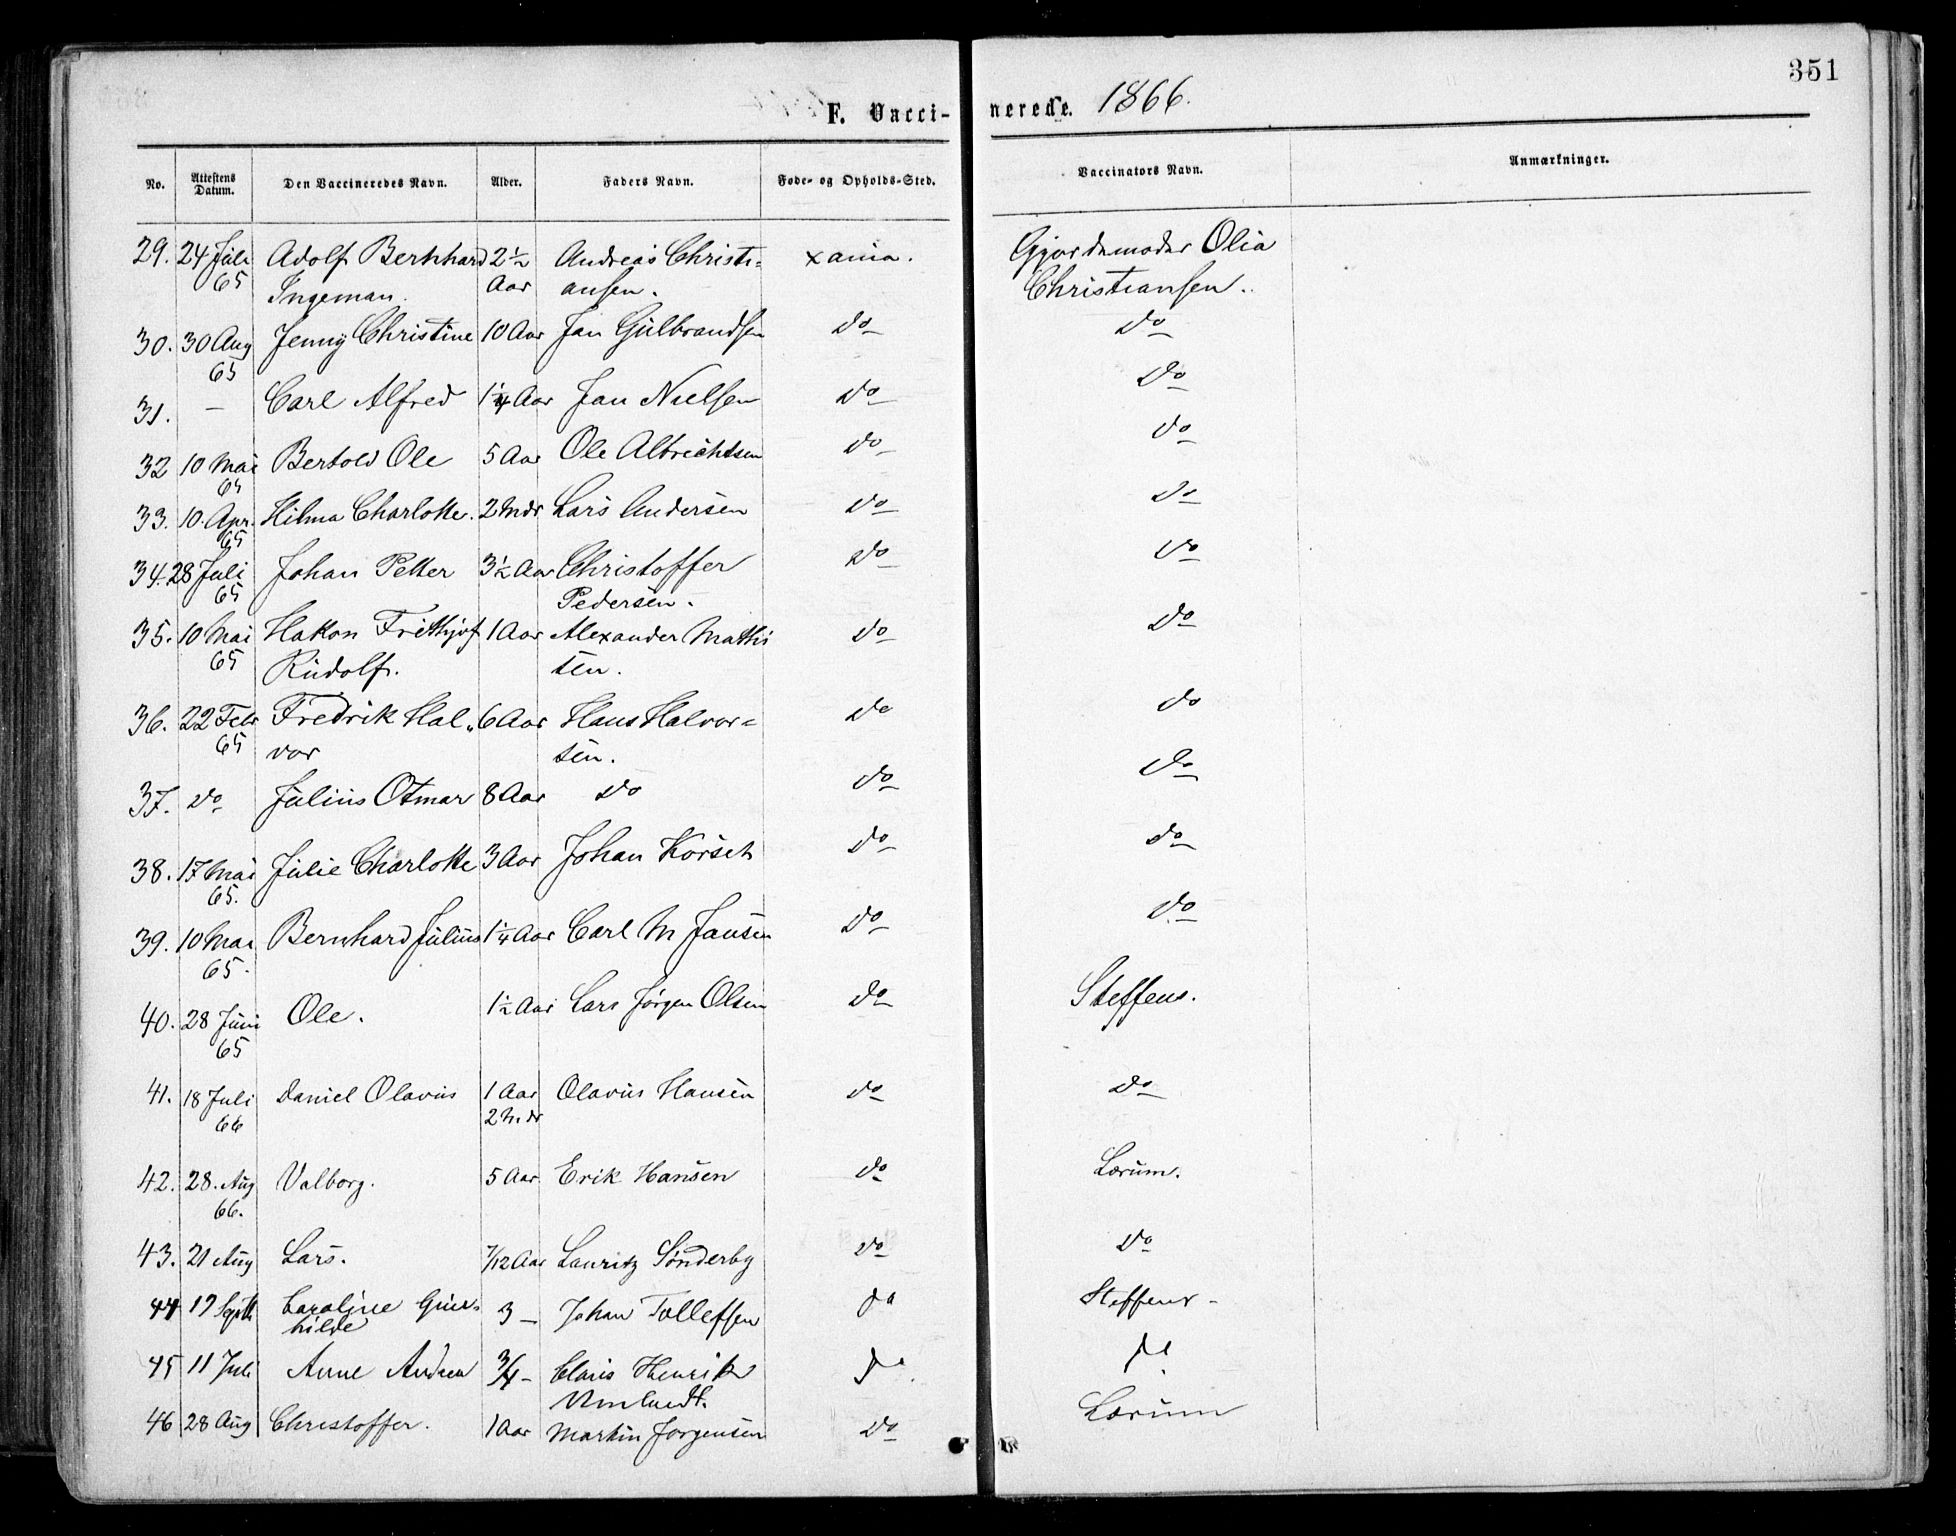 351
F. Vaccinerede. 1866.
No. Attestens Datum. Den Vaccineredes Navn. Alder. Faders Navn. Føde- og Opholds-Sted. Vaccinators Navn. Anmærkninger.
29. 24 Juli Adolf Bernhard 2½ Andreas Christi= Xania. Gjordemoder Olia
65 Ingeman. Aar ansen. Christiansen.
30. 30 Aug Jenny Christine 10 Aar Jan Gulbrandsen do do
65
31. — Carl Alfred 1¼ Aar Jan Nielsen do do
32 10 Mai Bertold Ole 5 Aar Ole Albrechtsen do do
65
33. 10. Apr. Hilma Charlotte. 2 Mdr Lars Andersen do do
65
34. 28 Juli Johan Petter 3½ Aar Christoffer do do
65 Pedersen.
35. 10 Mai Hakon Frithjof 1 Aar Alexander Mathi do do
65 Rudolf. sen.
36. 22 Febr Fredrik Hal„ 6 Aar Hans Halvor= do do
65 vor sen.
37. do Julius Otmar 8 Aar do do do
38. 17 Mai Julie Charlotte 3 Aar Johan Korsch do do
65.
39. 10 Mai Bernhard Julius 1¼ Aar Carl M Jansen do do
65.
40. 28 Juni Ole. 1½ Aar Lars Jørgen Olsen do Steffens.
65
41. 18 Juli Daniel Olavus 1 Aar Olavus Hansen do do
66 2 Mdr
42. 28. Aug Valborg. 5 Aar Erik Hansen do Lorum.
66.
43. 21 Aug Lars. 7/12 Aar Lauritz Sønderby do do
44 19 Septb Caroline Gun= 3 — Johan Tollefsen do Steffens -
hilde
45 11 Juli Anne Andrea ¾ - Claus Henrik do do
46 28 Aug Christoffer. 1 Aar Martin Jorgensen do Lorum